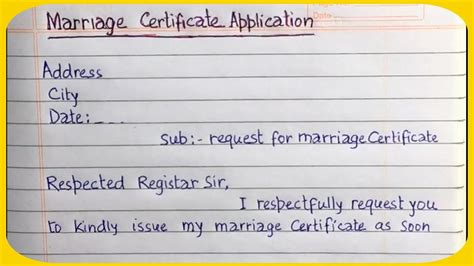 Marriage Certificate Application
Address
City
Date:_ _ _
Sub:- request for marriage Certificate
Respected Registar Sir,
I respectfully request you
to kindly issue my marriage Certificate as soon